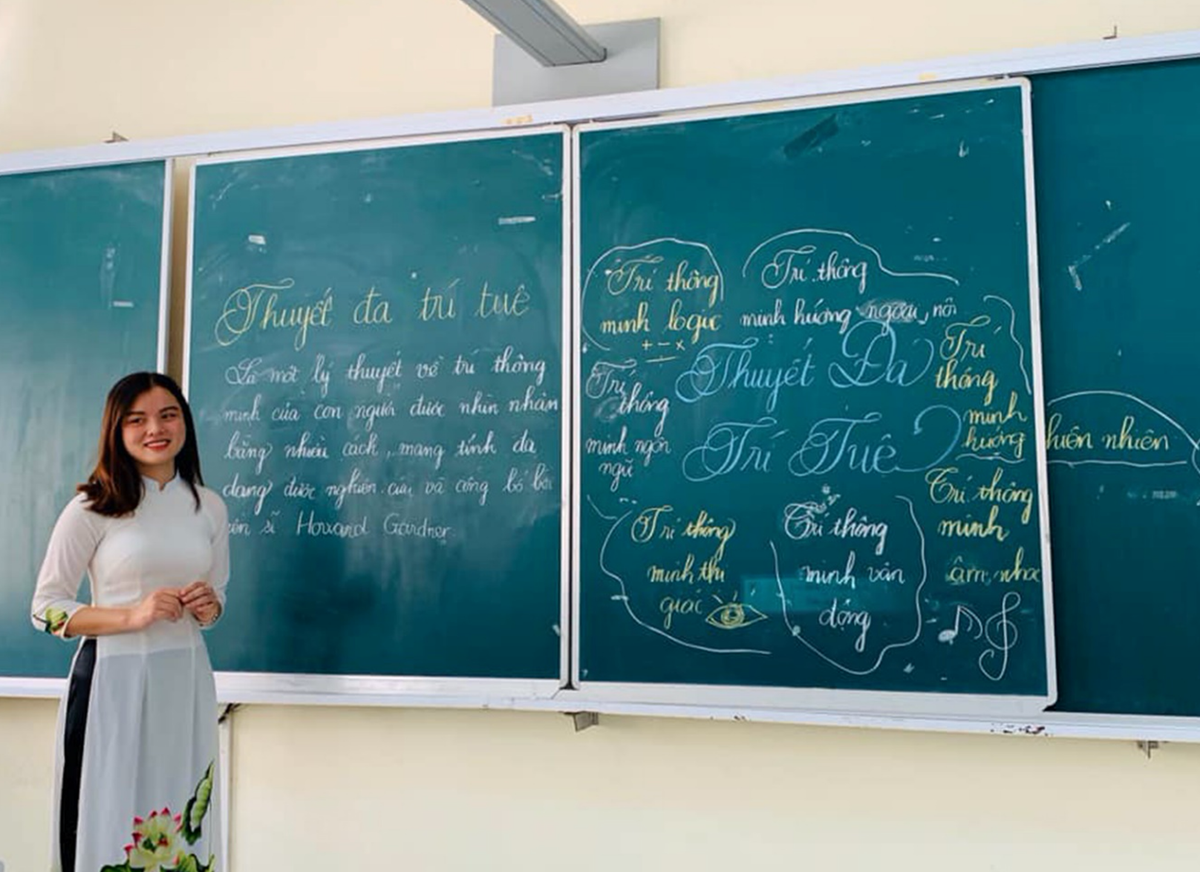 Thuyết đa trí tuệ
Là một lý thuyết về trí thông
minh của con người được nhìn nhận
bằng nhiều cách, mang tính đa
dạng được nghiên cứu và công bố bởi
sĩ Howard Gardner.
Trí thông
minh logic
+ - ×
Trí thông
minh hướng ngoại, nội
Thuyết Đa
Trí Tuệ
Trí
thông
minh ngôn
ngữ
Trí
thông
minh
hướng
thiên nhiên
Trí thông
minh
âm nhạc
Trí thông
minh thị
giác
Trí thông
minh vận
động